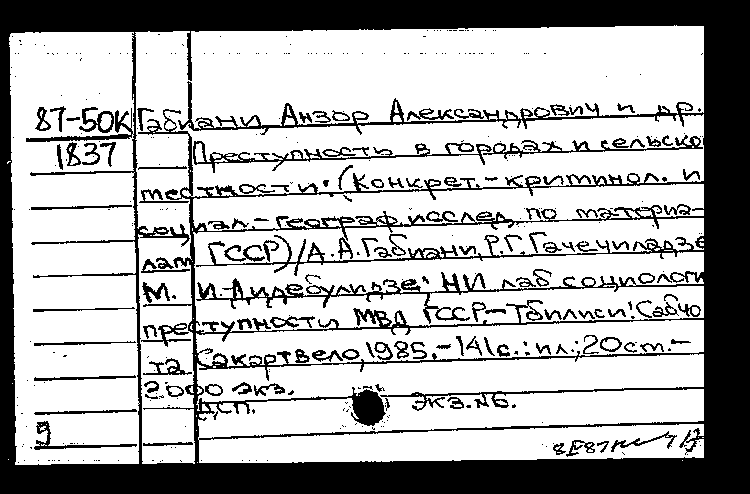 87-50К Габиани, Анзор Александрович и др.
1837 Преступность в городах и сельско
местности: (Конкрет.-криминол. и
социал.-географ. исслед. по материа-
лам ГССР)/А.А.Габиани, Р.Г.Гачечиладзе
М. И. Дидебулидзе; НИ лаб социологи
преступности МВД ГССР.-Тбилиси: Сабчо
та Сакартвело, 1985.-141с.:ил.; 20см.-
2000 экз.
ДСП. экз.№6.
9